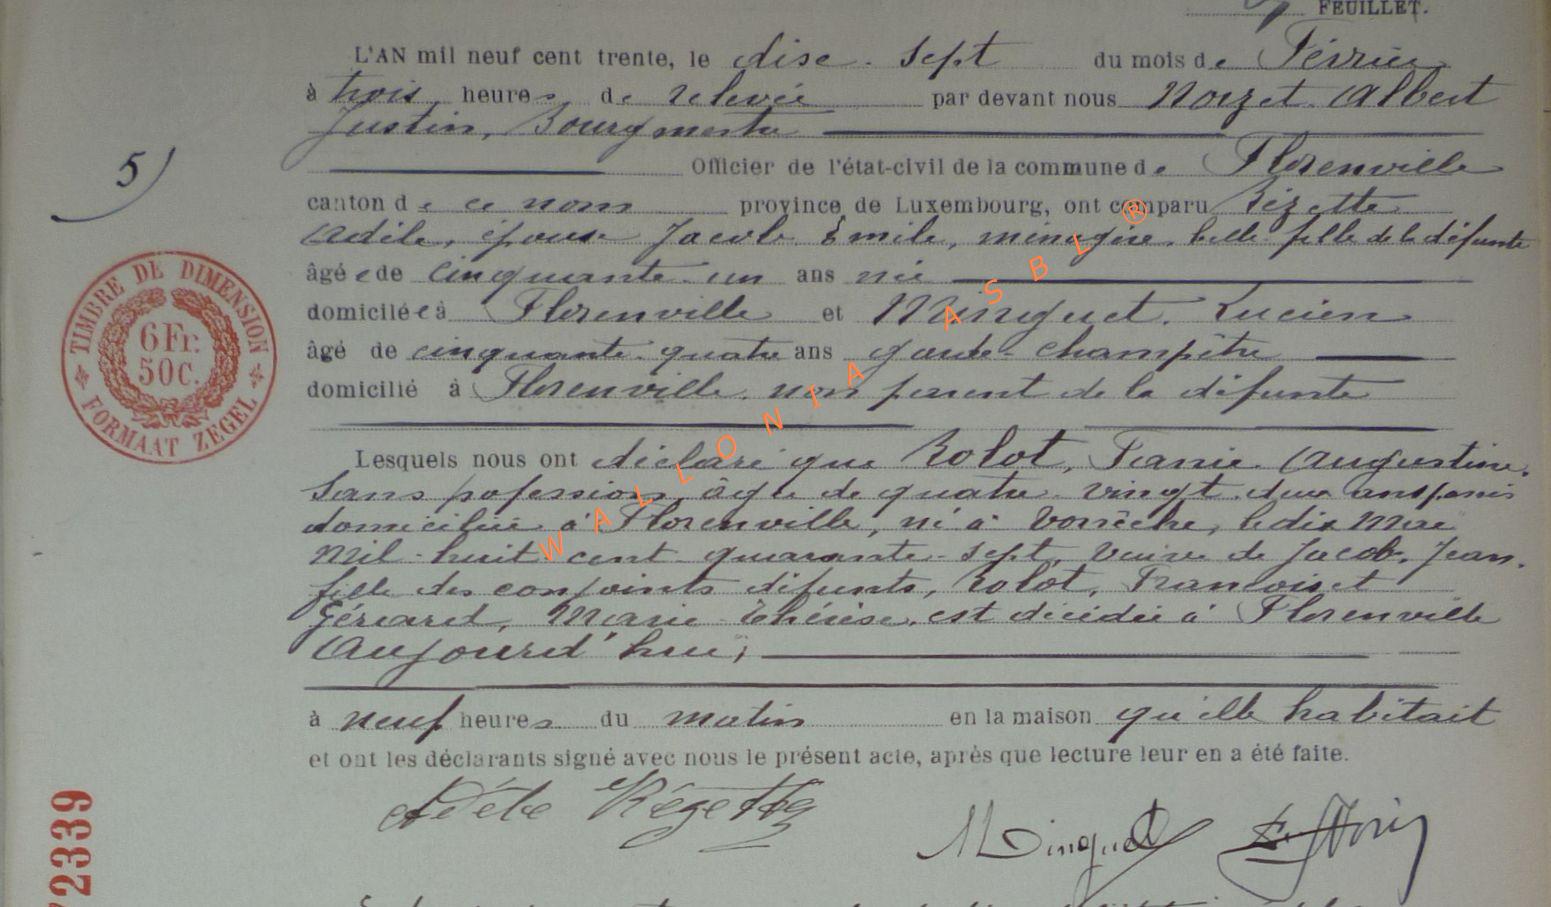 FEUILLET.
L'AN mil neuf cent trente, le dise-sept du mois de Février
à trois heures de relevée par devant nous Nozet Albert
Justin, Bourgmestre
5)
Officier de l'état-civil de la commune de Florenville
canton de ce nom province de Luxembourg, ont comparu Rézette
Adèle, épouse Jacob Emile, ménagère, belle-fille de la défunte
âgée de cinquante-un ans née
domiciliée à Florenville et Minguet, Lucien
âgé de cinquante-quatre ans garde-champêtre
domicilié à Florenville, non parent de la défunte
TIMBRE DE DIMENSION
6 Fr.
50 C.
FORMAAT ZEGEL
Lesquels nous ont déclaré que Rolot, Augustine,
sans pofession, âgée de quatre-vingt-deux ans
domiciliée à Florenville, né à Vonêche, le dix
mil-huit cent quarante-sept, veuve de Jacob, Jean,
fille des conjoints défunts, Rolot, François et
Gérard, Marie-Thérèse, est décédée à Florenville
Aujourd'hui,
à neuf heures du matin en la maison qu'elle habitait
et ont les déclarants signé avec nous le présent acte, après que lecture leur en a été faite.
Adèle Rézette
Minguet
2339
WALLONIA ASBL ®